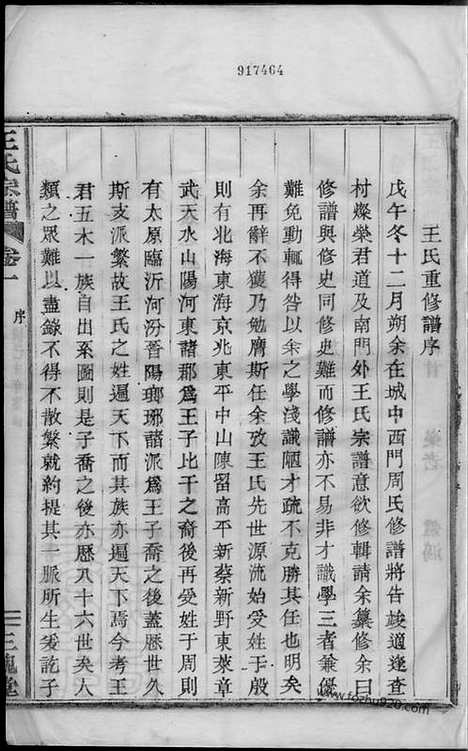 917464
王氏重修譜序
戊午冬十二月朔余在城中西門周氏修譜將告竣適逢查
村燦榮君道及南門外王氏宗譜意欲修輯請余纂修余曰
修譜與修史同修史難而修譜亦不易非才識學三者兼優
難免動輒得咎以余之學淺識陋才疏不克勝其任也明矣
余再辭不獲乃勉膺斯任余攷王氏先世源流始受姓于殷
則有北海東海京兆東平中山陳留高平新蔡新野東萊章
武天水山陽河東諸郡爲王子比干之裔後再受姓于周則
有太原臨沂河汾晉陽瑯琊諸派爲王子喬之後蓋歷世久
斯支派繁故王氏之姓遍天下而其族亦遍天下焉今考王
君五木一族自出系圖則是子喬之後亦歷八十六世矣人
類之眾難以盡錄不得不散繁就約提其一脈所生爰訖子
王氏宗譜
卷一
序
三槐堂
www.fozhu920.com